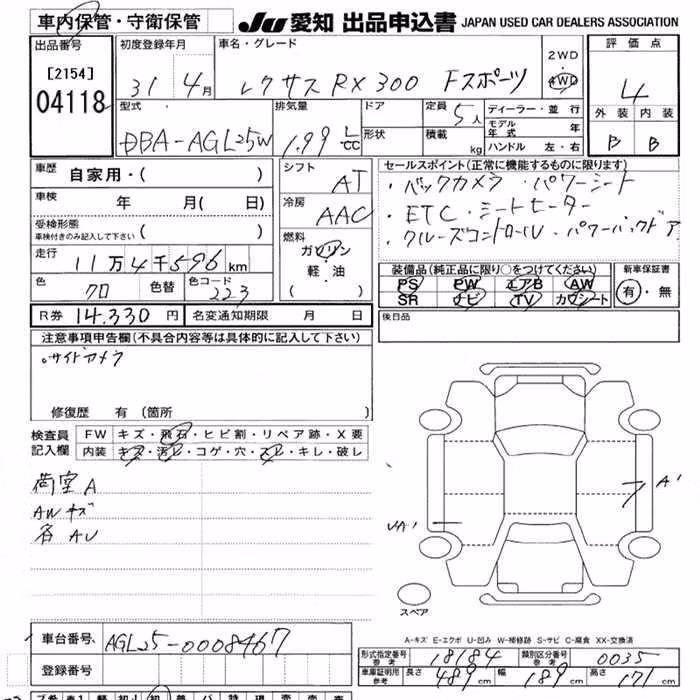 車内保管・守衛保管 JU 愛知 出品申込書 JAPAN USED CAR DEALERS ASSOCIATION
出品番号
[2154]
04118
初度登録年月
31 4月
車名・グレード
レクサス RX300 Fスポーツ
2WD
・
4WD
評価点
4
外装 内装
B B
型式
DBA-AGL25W
排気量
1.99 L
CC
ドア
形状
定員
5人
積載
kg
ディーラー・並行
モデル年式 年
ハンドル 左・右
車歴
自家用・( )
車検 年 月( 日)
受検形態
車検付きのみ記入して下さい ( )
走行
11万4千596km
色
クロ
色替
色コード
223
シフト
AT
冷房
AAC
燃料
ガソリン
・
軽・油
( )
セールスポイント(正常に機能するものに限ります)
・バックカメラ・パワーシート
・ETC・シートヒーター
・クルーズコントロール・パワーバックドア
装備品(純正品に限り○をつけてください)
PS PW エアB AW
SR ナビ TV カワシート
新車保証書
有・無
R券 14,330 円
名変通知期限 月 日
後日品
注意事項申告欄(不具合内容等は具体的に記入して下さい)
・サイドカメラ
修復歴 有(箇所 )
検査員
記入欄
FW キズ・飛石・ヒビ割・リペア跡・X要
内装 キズ・汚レ・コゲ・穴・スレ・キレ・破レ
荷室A
AWキズ
各AU
A'
UA'
スペア
A-キズ E-エクボ U-凹み W-補修跡 S-サビ C-腐食 XX-交換済
車台番号 AGL25-0008467
登録番号
形式指定番号
参考
18184
類別区分番号
参考
0035
車庫証明用
参考
長さ 489cm 幅 189cm 高さ 171cm